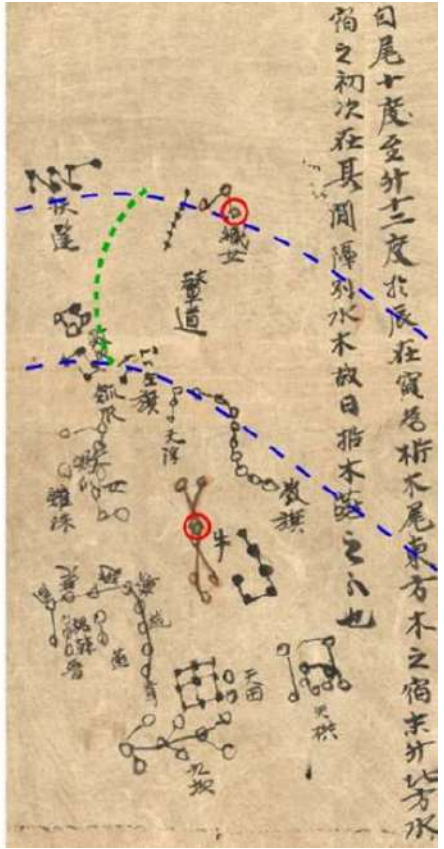 自尾十度至斗十二度於辰在寅為析木尾東方木之宿末斗北方水
宿之初次在其間隔別水木故曰析木燕之分也
織女
輦道
扶筐
左旗
瓠瓜
離珠
牛
天田
九坎